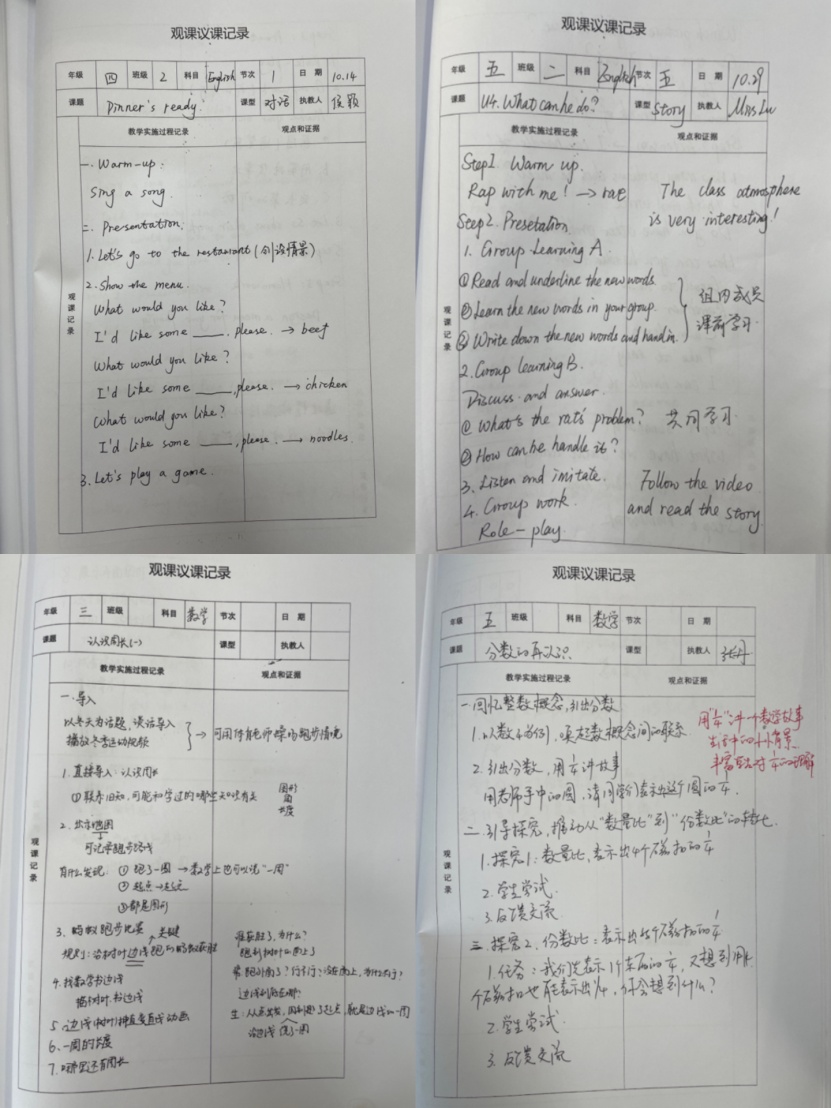 观课议课记录
年级 四 班级 2 科目 English 节次 1 日期 10.14
课题 Dinner's ready! 课型 对话 执教人 侯颖
教学实施过程记录 观点和证据
观课记录
一. Warm-up:
Sing a song.
二. Presentation:
1. Let's go to the restaurant (创设情景)
2. Show the menu.
What would you like?
I'd like some ____, please. → beef
What would you like?
I'd like some ____, please. → chicken
What would you like?
I'd like some ____, please. → noodles.
3. Let's play a game.
观课议课记录
年级 五 班级 二 科目 English 节次 五 日期 10.29
课题 U4. What can he do? 课型 Story 执教人 Miss Lu
教学实施过程记录 观点和证据
观课记录
Step1 Warm up.
Rap with me! → rat
The class atmosphere
is very interesting!
Step2. Presetation
1. Group Learning A.
① Read and underline the new words.
② Learn the new words in your group.
③ Write down the new words and hand in.
组内成员
课前学习.
2. Group learning B.
Discuss and answer.
① What's the rats' problem? 共同学习.
② How can he handle it?
3. Listen and imitate.
4. Group work.
Role-play
Follow the video
and read the story.
观课议课记录
年级 三 班级 科目 数学 节次 日期
课题 认识周长(一) 课型 执教人
教学实施过程记录 观点和证据
观课记录
一.导入
以冬天为话题，谈话导入
播放冬季运动视频
→ 可用体育老师 跑步情境
1. 直接导入：认识周长
① 联系旧知，可能和学过的哪些知识有关
图形
角
长度
2. 出示
可记录跑步路线
有什么发现：① 跑了一圈 → 数学上也可以说"一周"
② 起点→
③ 都是图形
3. 蚂蚁跑步比赛 关键
规则：沿树叶边线跑的蚂蚁获胜
谁获胜了，为什么？
4. 找数学书边线
描树叶、书边线
5. 边线(树叶)
6. 一周的长度
7. 哪里还有周长
观课议课记录
年级 五 班级 科目 数学 节次 日期
课题 分数的再认识 课型 执教人 张丹
教学实施过程记录 观点和证据
观课记录
一.回忆整数概念，引出分数
1. 以数4为例，唤起数概念间的联系
2. 引出分数，用1/4讲故事
用老师手中的圆，请同学们表示出这个圆的1/4.
用"1/4"讲一个数学故事
生活中的小背景
丰富 对1/4的理解
二.引导探究，推动从"数量比"到"份数比"的转化.
1. 探究1：数量比，表示出4个磁扣的1/4
2. 学生尝试.
3. 反馈交流.
三.探究2，份数比：表示出 个磁扣的1/4
1. 任务：我们能表示1个东西的1/4，又想到用4
个磁扣也能表示出1/4，你会想到什么？
2. 学生尝试.
3. 反馈交流